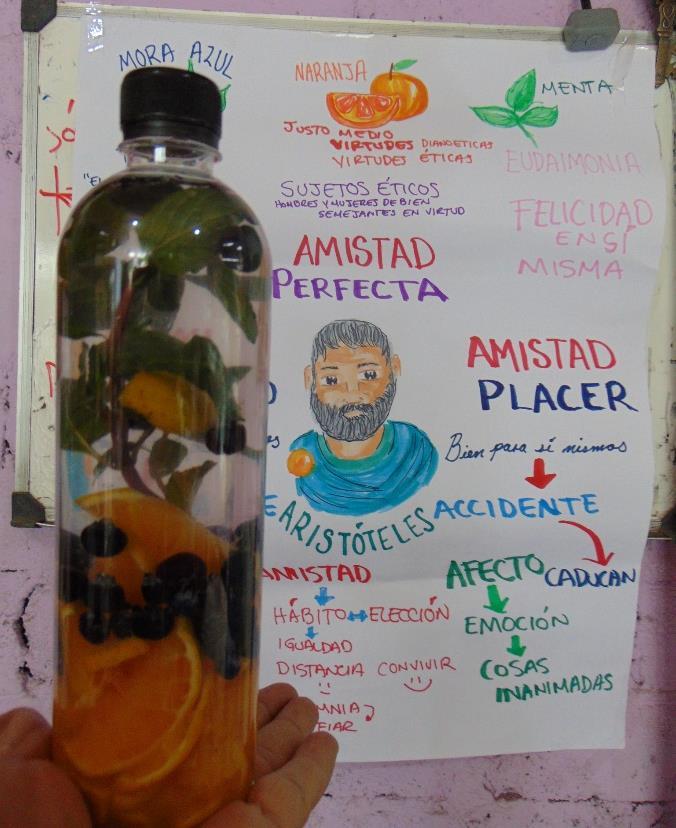 MORA AZUL
NARANJA
MENTA
JUSTO MEDIO
VIRTUDES DIANOETICAS
VIRTUDES ÉTICAS
EUDAIMONIA
SUJETOS ÉTICOS
HOMBRES Y MUJERES DE BIEN
SEMEJANTES EN VIRTUD
FELICIDAD
EN SÍ
MISMA
AMISTAD
PERFECTA
AMISTAD
PLACER
Bien para sí mismos
ACCIDENTE
CADUCAN
ARISTÓTELES
AMISTAD
HÁBITO ↔ ELECCIÓN
IGUALDAD
DISTANCIA CONVIVIR
AFECTO
EMOCIÓN
COSAS
INANIMADAS